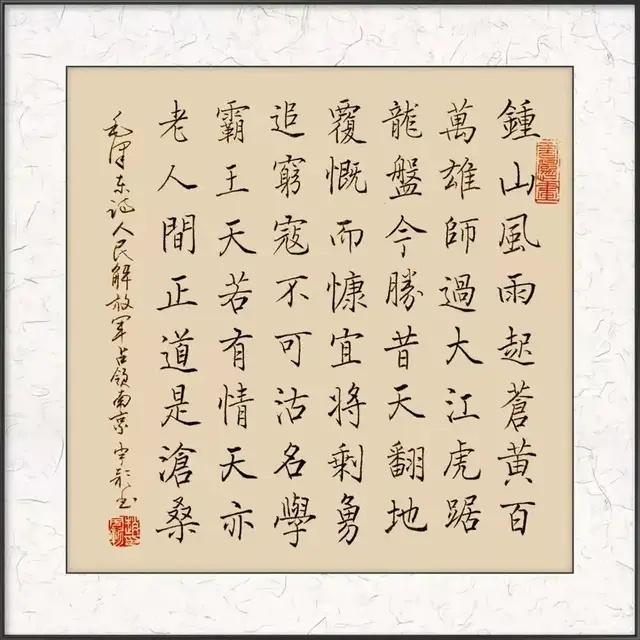 鍾山風雨起蒼黃百
萬雄師過大江虎踞
龍盤今勝昔天翻地
覆慨而慷宜將剩勇
追窮寇不可沽名學
霸王天若有情天亦
老人間正道是滄桑
毛泽东诗人民解放军占领南京